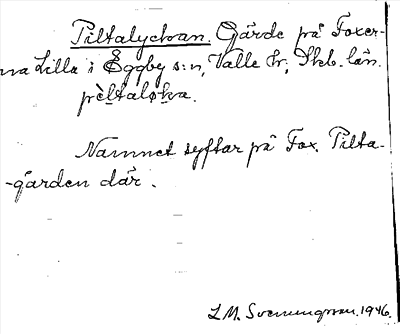 Piltalyckan. Gärde på Foxer-
na Lilla i Eggby s:n, Valle hr, Skb. län.
pèltaløka.
Namnet syftar på Fox. Pilta-
-gården där.
L.M. Svenungsson. 1946.